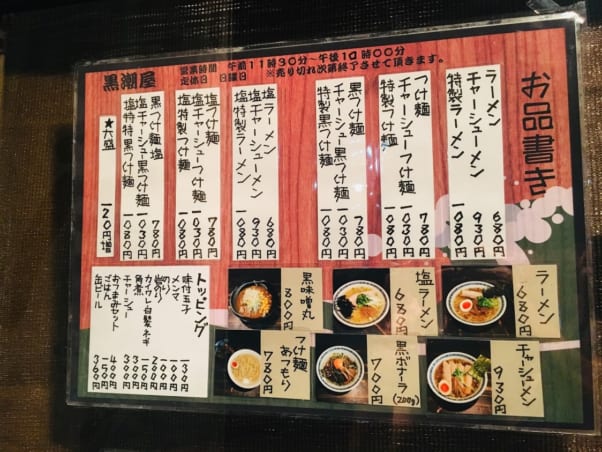 お品書き
黒潮屋
営業時間 午前11時30分~午後10時00分
定休日 日曜日 ※売り切れ次第終了させて頂きます。
ラーメン 680円
チャーシューメン 930円
特製ラーメン 1080円
つけ麺 780円
チャーシューつけ麺 1030円
特製つけ麺 1080円
黒つけ麺 780円
チャーシュー黒つけ麺 1030円
特製黒つけ麺 1080円
塩ラーメン 680円
塩チャーシューメン 930円
塩特製ラーメン 1080円
塩つけ麺 780円
塩チャーシューつけ麺 1030円
塩特製つけ麺 1080円
黒つけ麺塩 780円
塩チャーシュー黒つけ麺 1030円
塩特製黒つけ麺 1080円
★大盛 120円増
トッピング
味付玉子 130円
メンマ 100円
のり 100円
岩のり
カイワレ・白髪ネギ 150円
角煮
チャーシュー
ごはん
おつまみセット
缶ビール 360円
ラーメン 680円
塩ラーメン 680円
黒味噌丸 800円
チャーシュメン 930円
黒ボナーラ(200g) 700円
つけ麺あつもり 780円